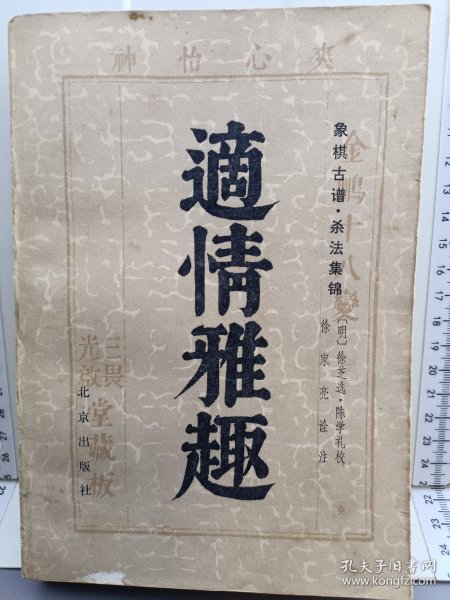 爽心怡神
金鵬十八變
象棋古谱·杀法集锦
〔明〕徐芝选·陈学礼校
徐家亮诠注
適情雅趣
北京出版社
三畏堂藏版
光啟
孔夫子旧书网
www.kongfz.com